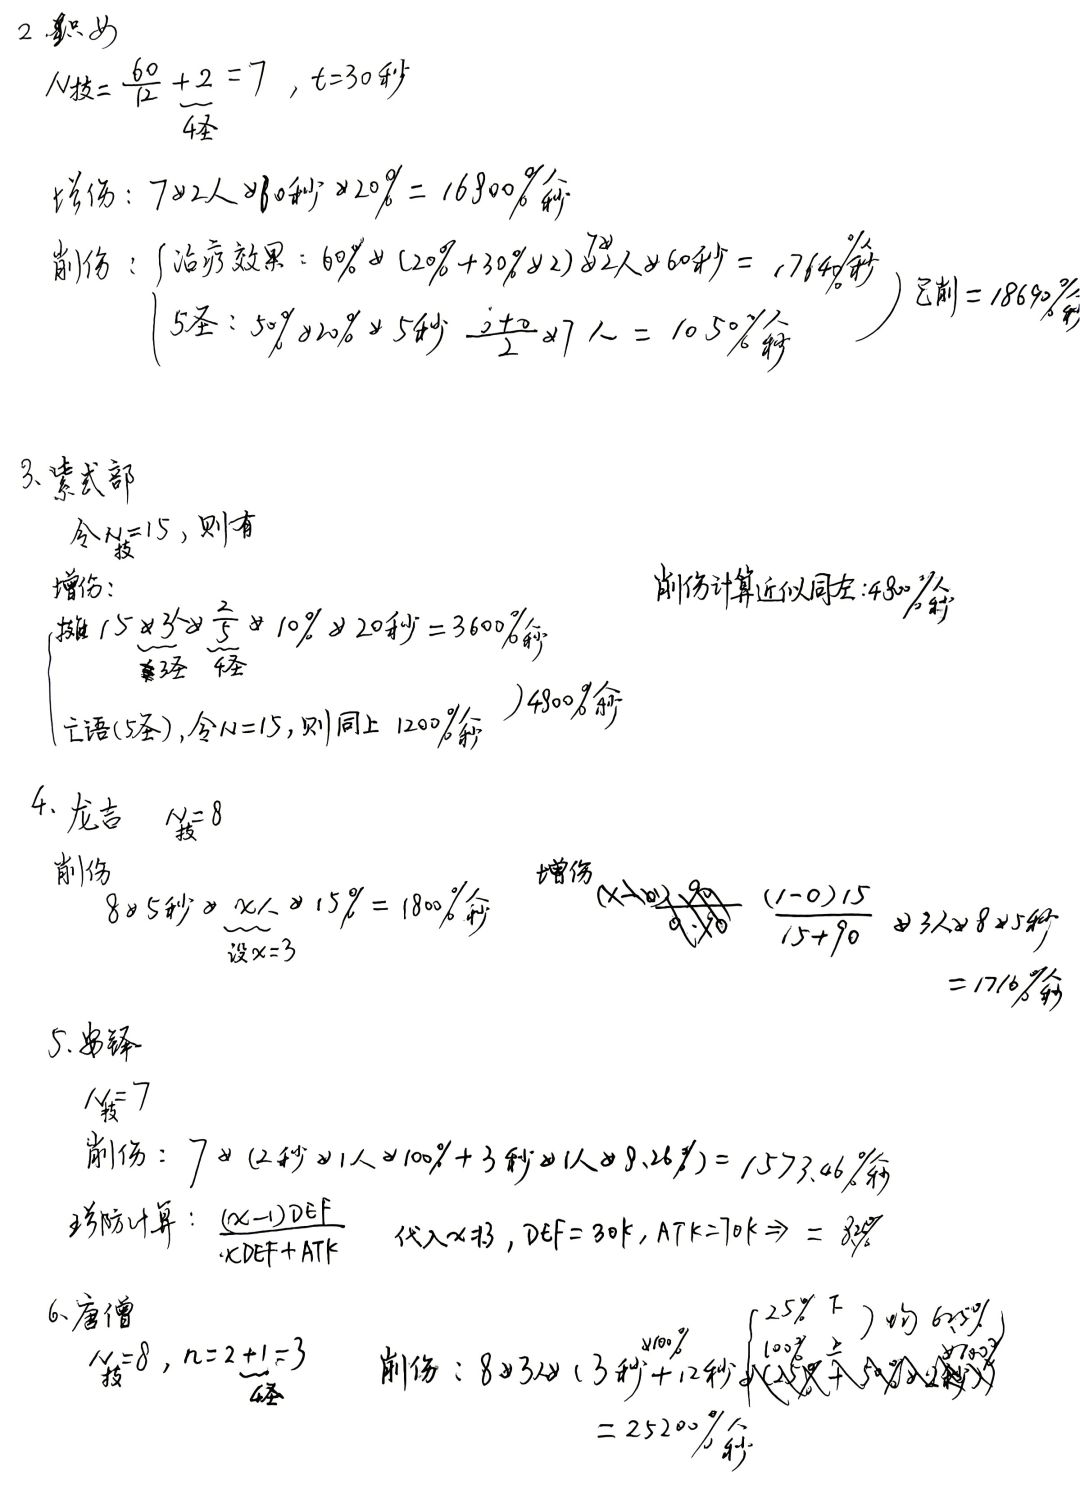 2 织女
N技 = 60/12 + 2 = 7 , t=30秒
4圣
增伤: 7×2人×60秒×20% = 16800%人/秒
削伤: { 治疗效果: 60%×(20%+30%×2)×7×2人×60秒 = 17640%人/秒
5圣: 50%×20%×5秒 /2 ×7人 = 1050%人/秒 ) 削 = 18690%人/秒
3、紫式部
令N技=15, 则有
增伤:
削伤计算近似同左: 4800%人/秒
15×3人×2/5×10%×20秒 = 3600%人/秒
3圣 4圣
亡语(5圣), 令N=15, 则同上 1200%人/秒 ) 4800%人/秒
4、龙吉 N技=8
削伤
8×5秒×x人×15% = 1800%人/秒
设x=3
增伤 (1-0)15/15+90 ×3人×8×5秒
= 1716%人/秒
5、安铎
N技=7
削伤: 7×(2秒×1人×100%+3秒×1人×8.26%) = 1573.46%人/秒
增防计算: (x-1)DEF/xDEF+ATK 代入x=1.3, DEF=30K, ATK=70K ⇒ = 8.26%
6、唐僧
N技=8, n=2+1=3
4圣
削伤: 8×3人×(3秒×100%+12秒× { 25% 下 100% 上 ) 均 62.5% )
= 25200%人/秒